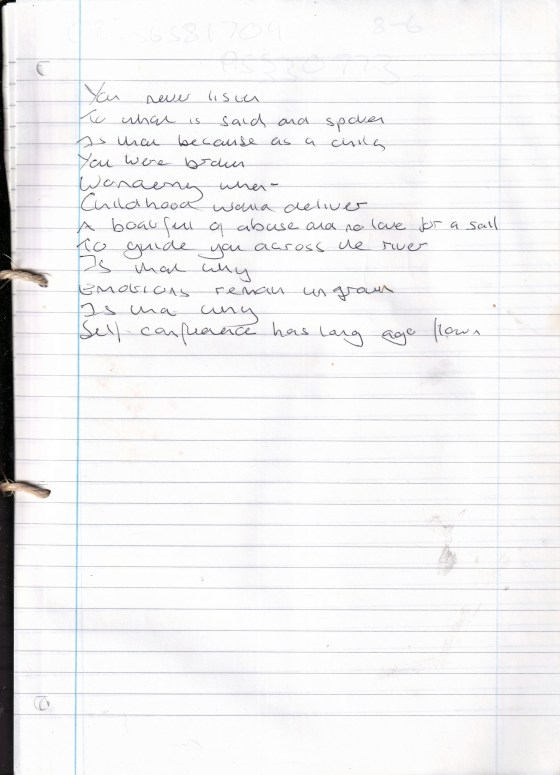 You never listen
To what is said and spoken
Is that because as a child
You were broken
Wondering what
Childhood would deliver
A boatfull of abuse and no love for a sail
To guide you across the river
Is that why
Emotions remain ungrown
Is that why
Self confidence has long ago flown